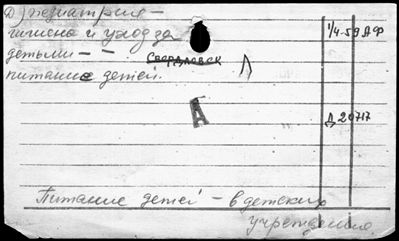 Д) педиатрия -
гигиена и уход за
детьми - -
Свердловск
питание детей.
Л
1/4-59 АФ
А
Д 20717
Питание детей - в детских
учреждениях